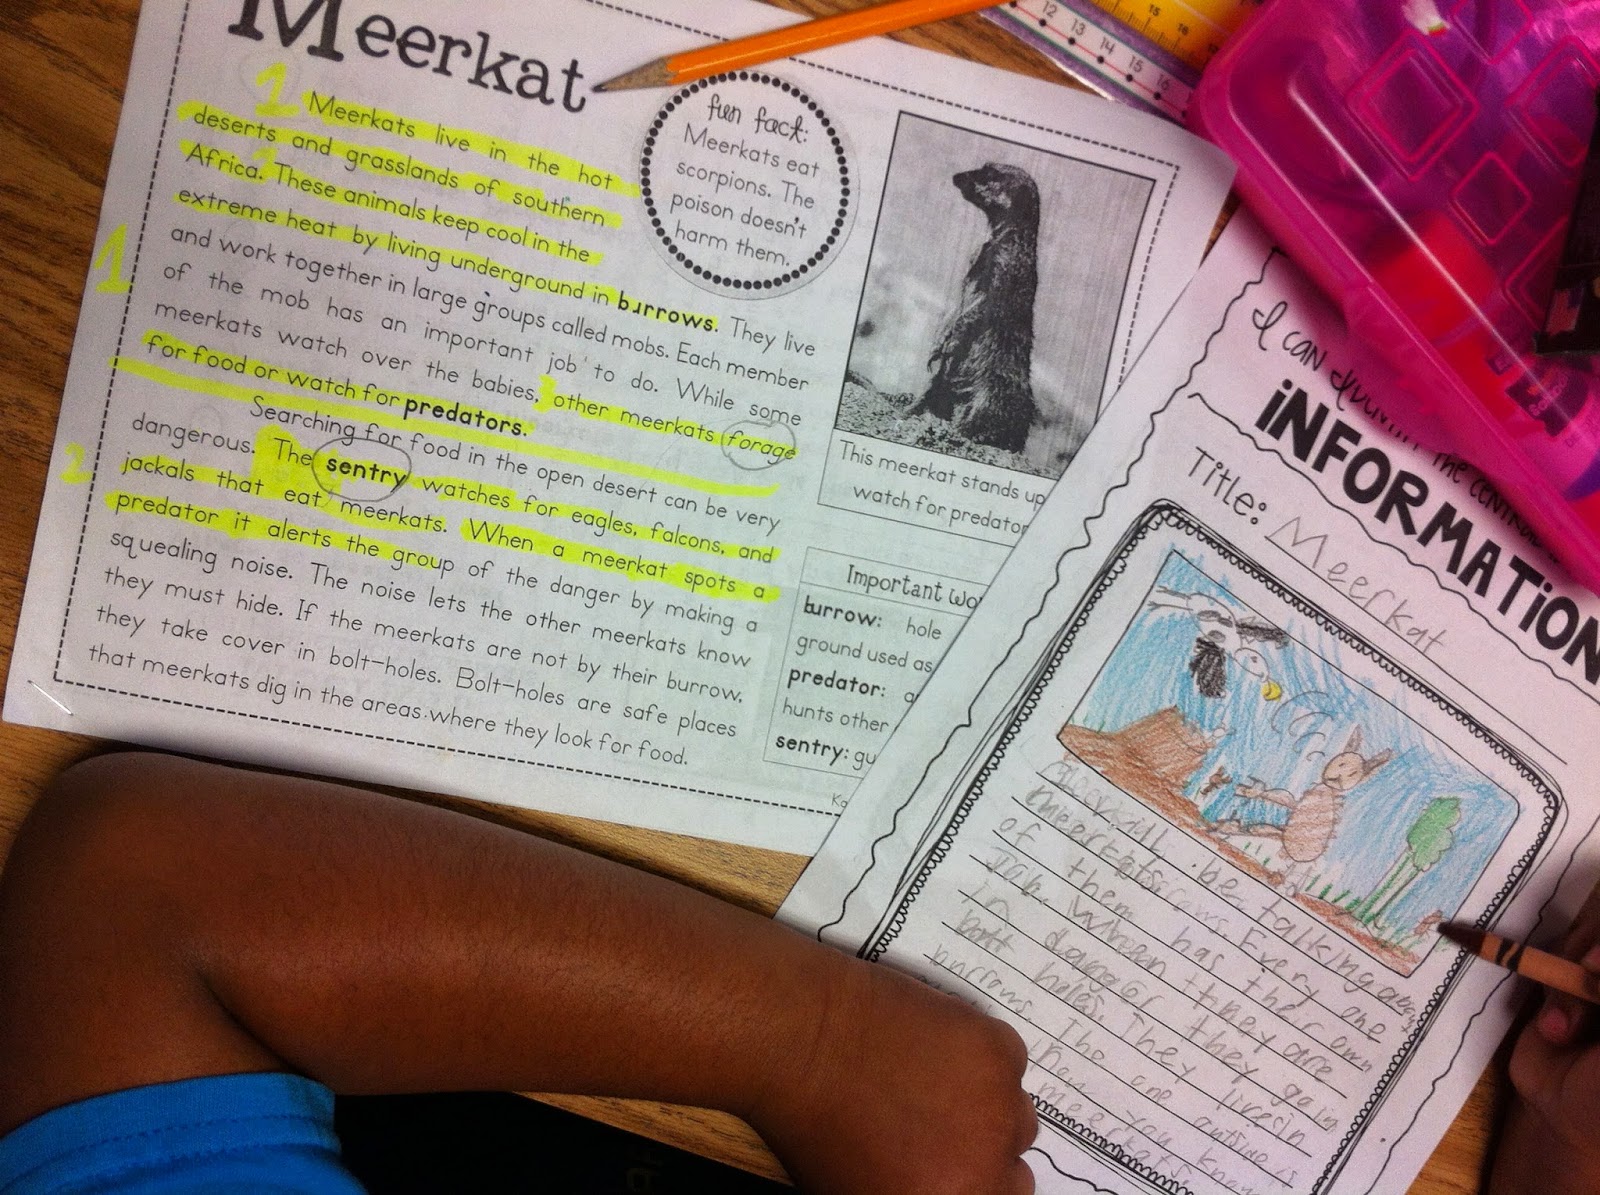 Meerkat
1 Meerkats live in the hot
deserts and grasslands of southern
Africa. These animals keep cool in the
extreme heat by living underground in burrows. They live
1
and work together in large groups called mobs. Each member
of the mob has an important job to do. While some
meerkats watch over the babies, other meerkats forage
for food or watch for predators.
Searching for food in the open desert can be very
2
dangerous. The sentry watches for eagles, falcons, and
jackals that eat meerkats. When a meerkat spots a
predator it alerts the group of the danger by making a
squealing noise. The noise lets the other meerkats know
they must hide. If the meerkats are not by their burrow,
they take cover in bolt-holes. Bolt-holes are safe places
that meerkats dig in the areas where they look for food.
fun fact:
Meerkats eat
scorpions. The
poison doesn't
harm them.
This meerkat stands up
watch for predator
Important wo
burrow: hole
ground used as
predator: a
hunts other
sentry: gu
12 13 14 15 16
15 16
I can the
INFORMATION
Title: Meerkat
be talking
meerkats. Every one
of them has their own
Job. When they are
in danger they go in
bolt holes. They live in
burrows. The one
you know
meerkats